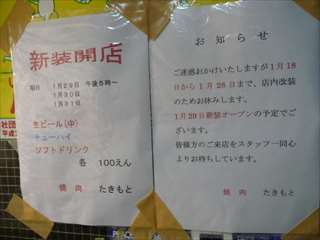 新装開店
期日 1月29日 午後5時～
1月30日
1月31日
生ビール(中)
チューハイ
ソフトドリンク
各 100えん
焼肉 たきもと
お知らせ
ご迷惑おかけいたしますが1月18
日から1月28日まで、店内改装
のためお休みします。
1月29日新装オープンの予定でご
ざいます。
皆様方のご来店をスタッフ一同心
よりお待ちしています。
焼肉 たきもと